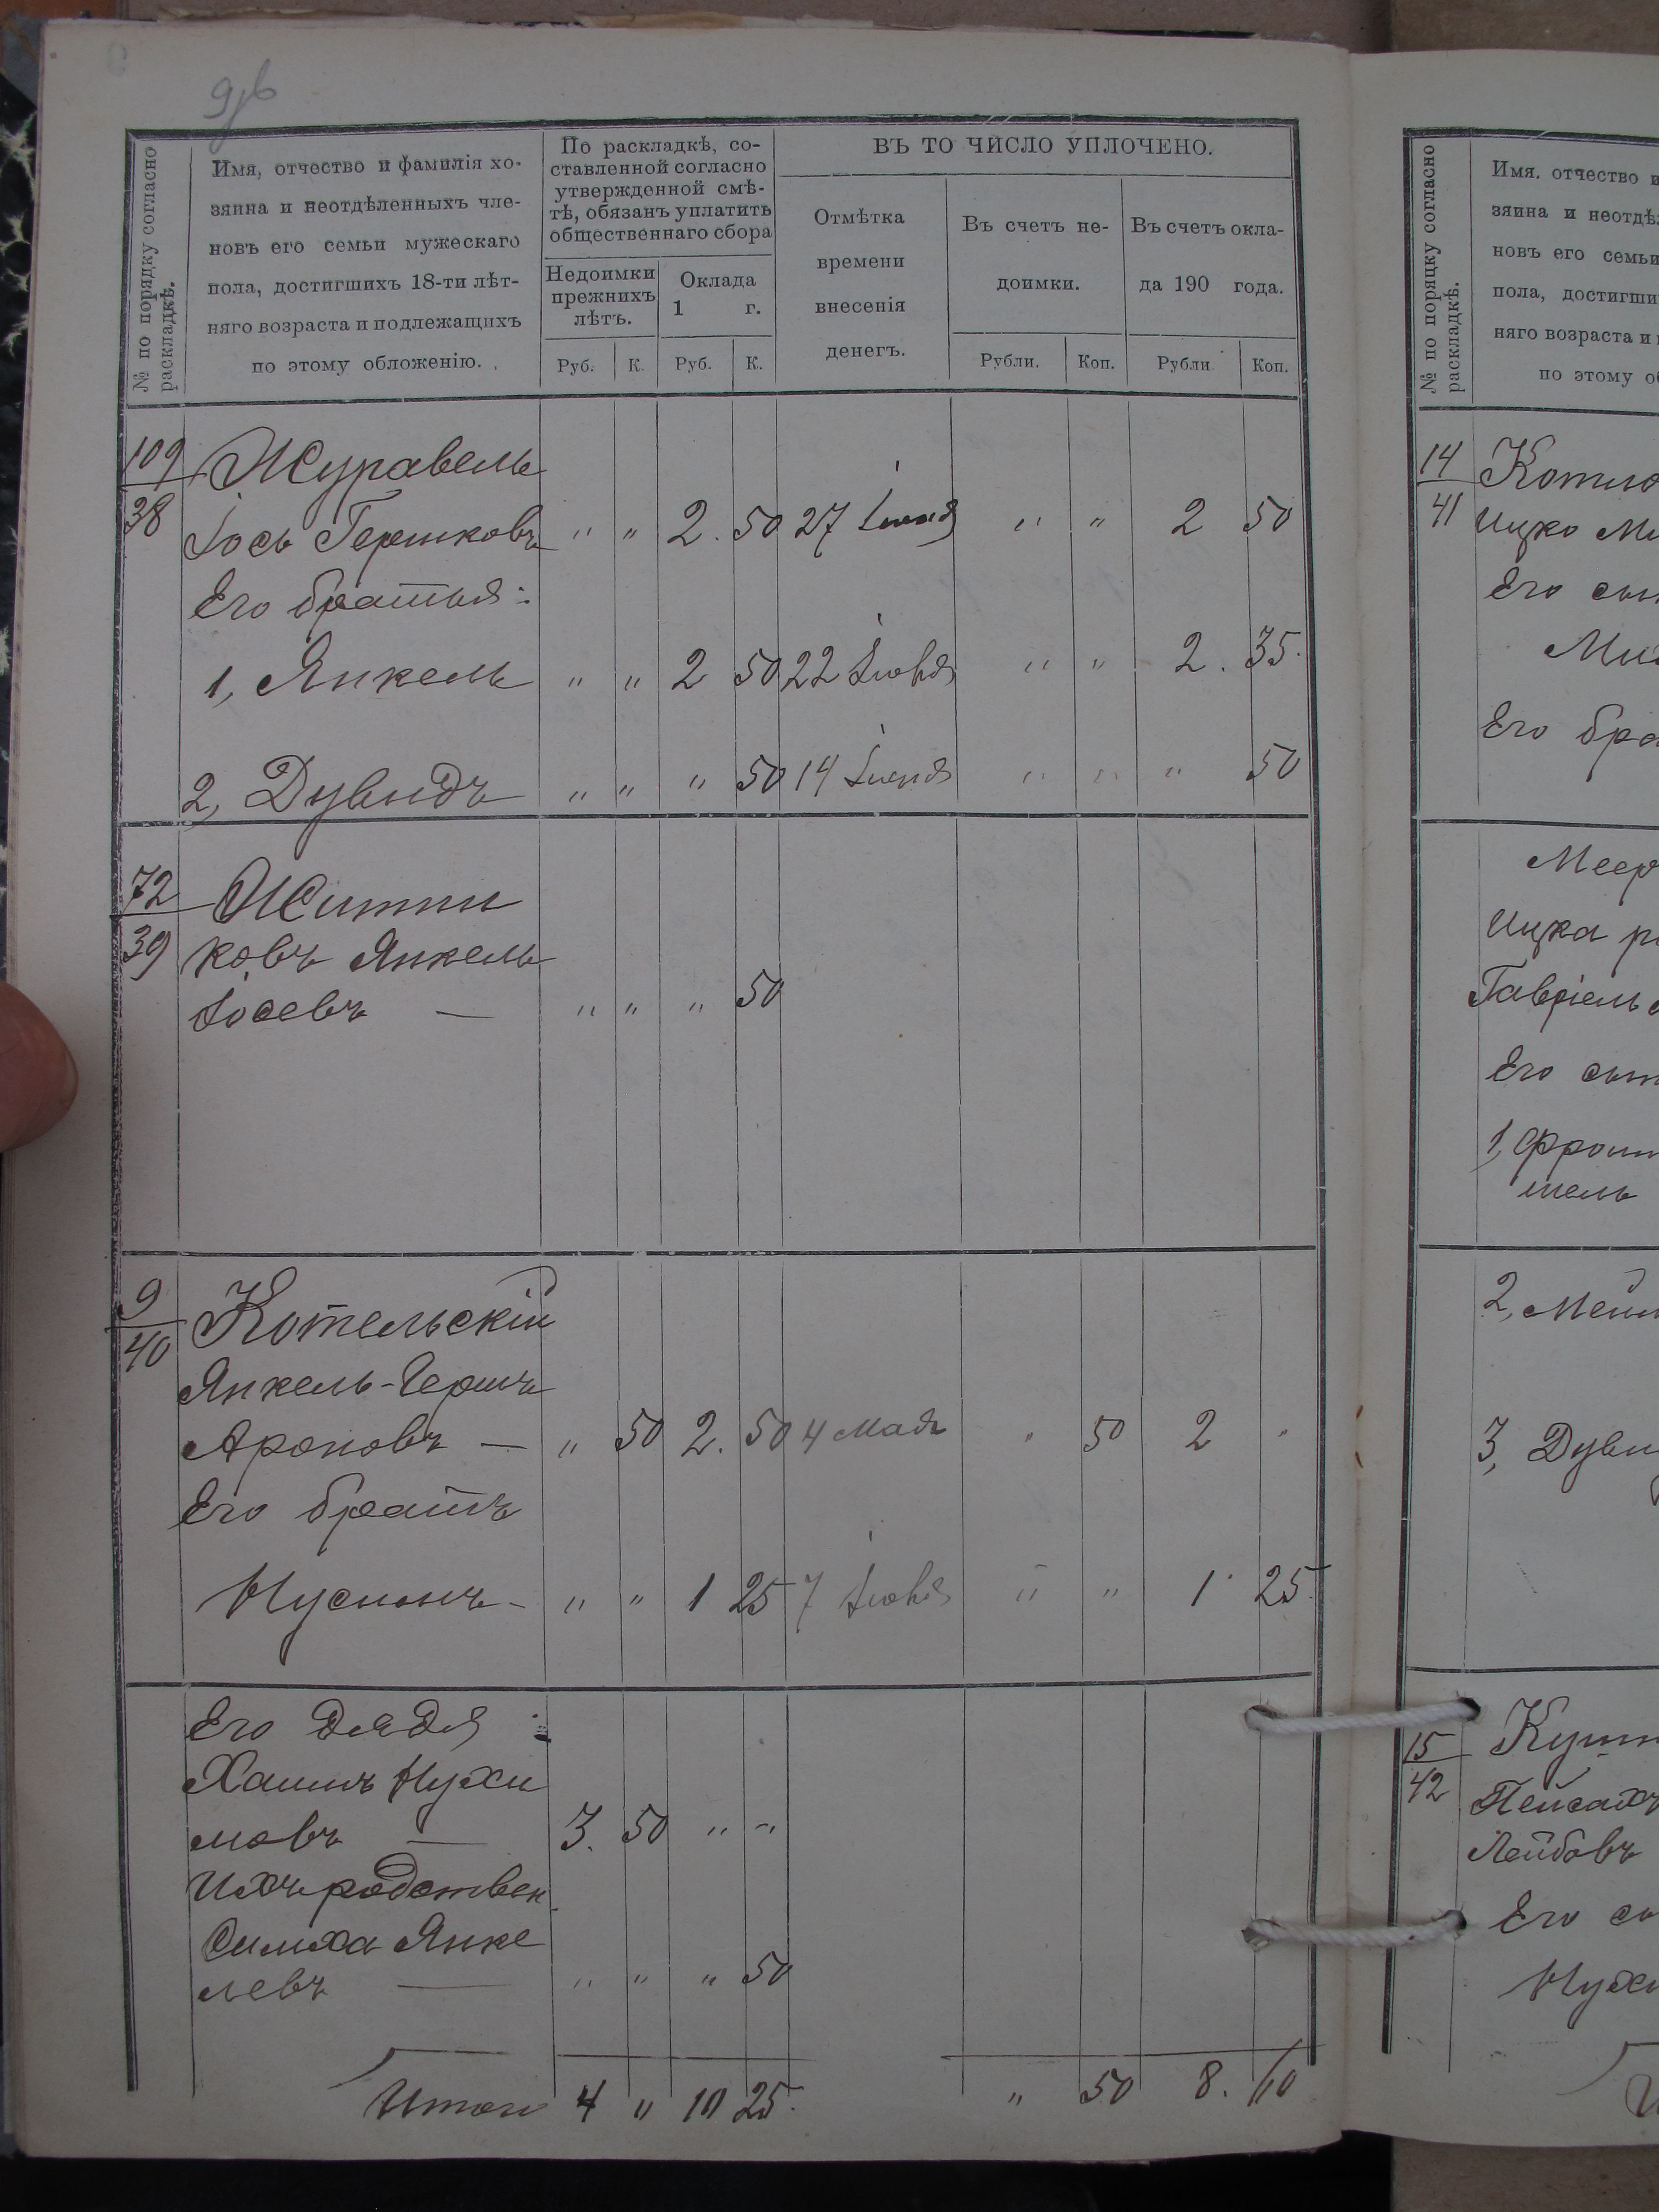 № по порядку согласно
раскладкѣ.
Имя, отчество и фамилія хо-
зяина и неотдѣленныхъ чле-
новъ его семьи мужескаго
пола, достигшихъ 18-ти лѣт-
няго возраста и подлежащихъ
по этому обложенію.
По раскладкѣ, со-
ставленной согласно
утвержденной смѣ-
тѣ, обязанъ уплатить
общественнаго сбора
Недоимки
прежнихъ
лѣтъ.
Оклада
1 г.
Руб. К. Руб. К.
ВЪ ТО ЧИСЛО УПЛОЧЕНО.
Отмѣтка
времени
внесенія
денегъ.
Въ счетъ не-
доимки.
Въ счетъ окла-
да 190 года.
Рубли. Коп. Рубли. Коп.
109 Журавель
38 Іось Гершковъ " " 2. 50 27 Іюня " " 2 50
Его братья:
1, Янкель " " 2 50 22 Іюня " " 2. 35.
2, Дувидъ " " " 50 14 Іюня " " " 50
72 Житни
39 ковъ Янкель
Іосевъ — " " " 50
9 Котельскій
40
Янкель-Гершъ
Ароновъ — " 50 2. 50 4 Мая " 50 2 "
Его братъ
Нусинъ - " " 1 25 7 Іюня " " 1 25.
Его дядя:
Хаимъ Нухи
мовъ — 3. 50 " "
Ихъ родствен
Симха Янке
левъ — " " " 50
Итого 4 " 10 25. " 50 8. 60
№ по порядку согласно
раскладкѣ.
Имя, отчество и
зяина и неотдѣ
новъ его семьи
пола, достигши
няго возраста и
по этому об
14
41 Ицко
Его
Его
Меер
Ицка
Гавріель
Его
1,
шель
2,
3, Дуви
15
42 Пейсахъ
Лейбовъ
Его